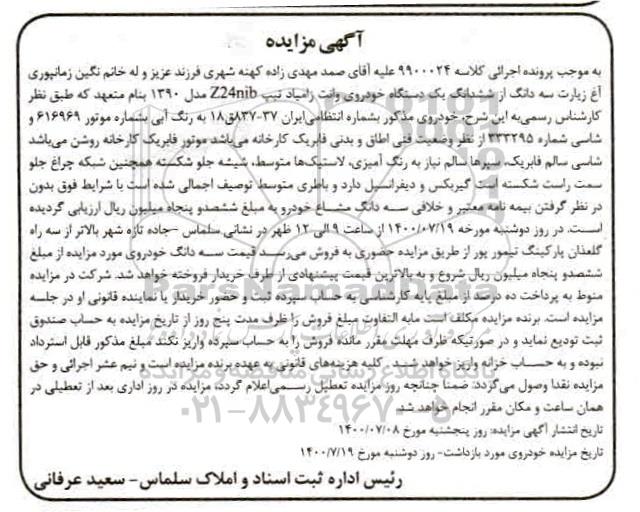 آگهی مزایده
به موجب پرونده اجرائی کلاسه ۹۹۰۰۰۲۴ علیه آقای صمد مهدی زاده کهنه شهری فرزند عزیز و له خانم نگین زمانپوری
آغ زیارت سه دانگ از ششدانگ یک دستگاه خودروی وانت زامیاد تیپ Z24nib مدل ۱۳۹۰ بنام متعهد که طبق نظر
کارشناس رسمی‌به این شرح، خودروی مذکور بشماره انتظامی‌ایران ۳۷-۸۳۷ق۱۸ به رنگ آبی بشماره موتور ۶۱۶۹۶۹ و
شاسی شماره ۳۳۳۲۹۵ از نظر وضعیت فنی اطاق و بدنی فابریک کارخانه می‌باشد موتور فابریک کارخانه روشن می‌باشد
شاسی سالم فابریک، سپرها سالم نیاز به رنگ آمیزی، لاستیک‌ها متوسط، شیشه جلو شکسته همچنین شبکه چراغ جلو
سمت راست شکسته است گیربکس و دیفرانسیل دارد و باطری متوسط توصیف اجمالی شده است با شرایط فوق بدون
در نظر گرفتن بیمه نامه معتبر و خلافی سه دانگ مشاع خودرو به مبلغ ششصدو پنجاه میلیون ریال ارزیابی گردیده
است. در روز دوشنبه مورخه ۱۴۰۰/۰۷/۱۹ از ساعت ۹ الی ۱۲ ظهر در نشانی سلماس -جاده تازه شهر بالاتر از سه راه
گلعذان پارکینگ تیمور پور از طریق مزایده حضوری به فروش می‌رسد قیمت سه دانگ خودروی مورد مزایده از مبلغ
ششصدو پنجاه میلیون ریال شروع و به بالاترین قیمت پیشنهادی از طرف خریدار فروخته خواهد شد. شرکت در مزایده
منوط به پرداخت ده درصد از مبلغ پایه کارشناسی به حساب سپرده ثبت و حضور خریدار یا نماینده قانونی او در جلسه
مزایده است. برنده مزایده مکلف است مابه التفاوت مبلغ فروش را ظرف مدت پنج روز از تاریخ مزایده به حساب صندوق
ثبت تودیع نماید و در صورتیکه ظرف مهلت مقرر مانده فروش را به حساب سپرده واریز نکند مبلغ مذکور قابل استرداد
نبوده و به حساب خزانه واریز خواهد شد. کلیه هزینه‌های قانونی به عهده برنده مزایده است و نیم عشر اجرائی و حق
مزایده نقدا وصول می‌گردد. ضمنا چنانچه روز مزایده تعطیل رسمی‌اعلام گردد، مزایده در روز اداری بعد از تعطیلی در
همان ساعت و مکان مقرر انجام خواهد شد.
تاریخ انتشار آگهی مزایده: روز پنجشنبه مورخ ۱۴۰۰/۰۷/۰۸
تاریخ مزایده خودروی مورد بازداشت- روز دوشنبه مورخ ۱۴۰۰/۷/۱۹
رئیس اداره ثبت اسناد و املاک سلماس- سعید عرفانی
ParsNamadData
۰۲۱-۸۸۳۴۹۶۷۰-۵